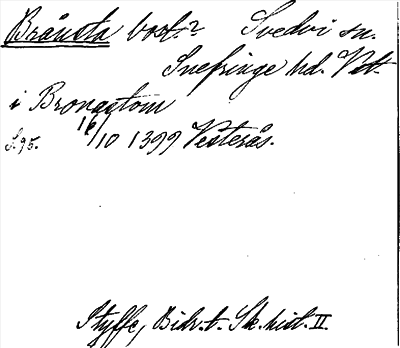 Brånsta bost.? Svedvi sn.
Snefringe hd. Vstl.
i Bronagtom
S. 95. 16/10 1399 Vesterås.
Styffe, Bidr. t. Sk. hist. II.